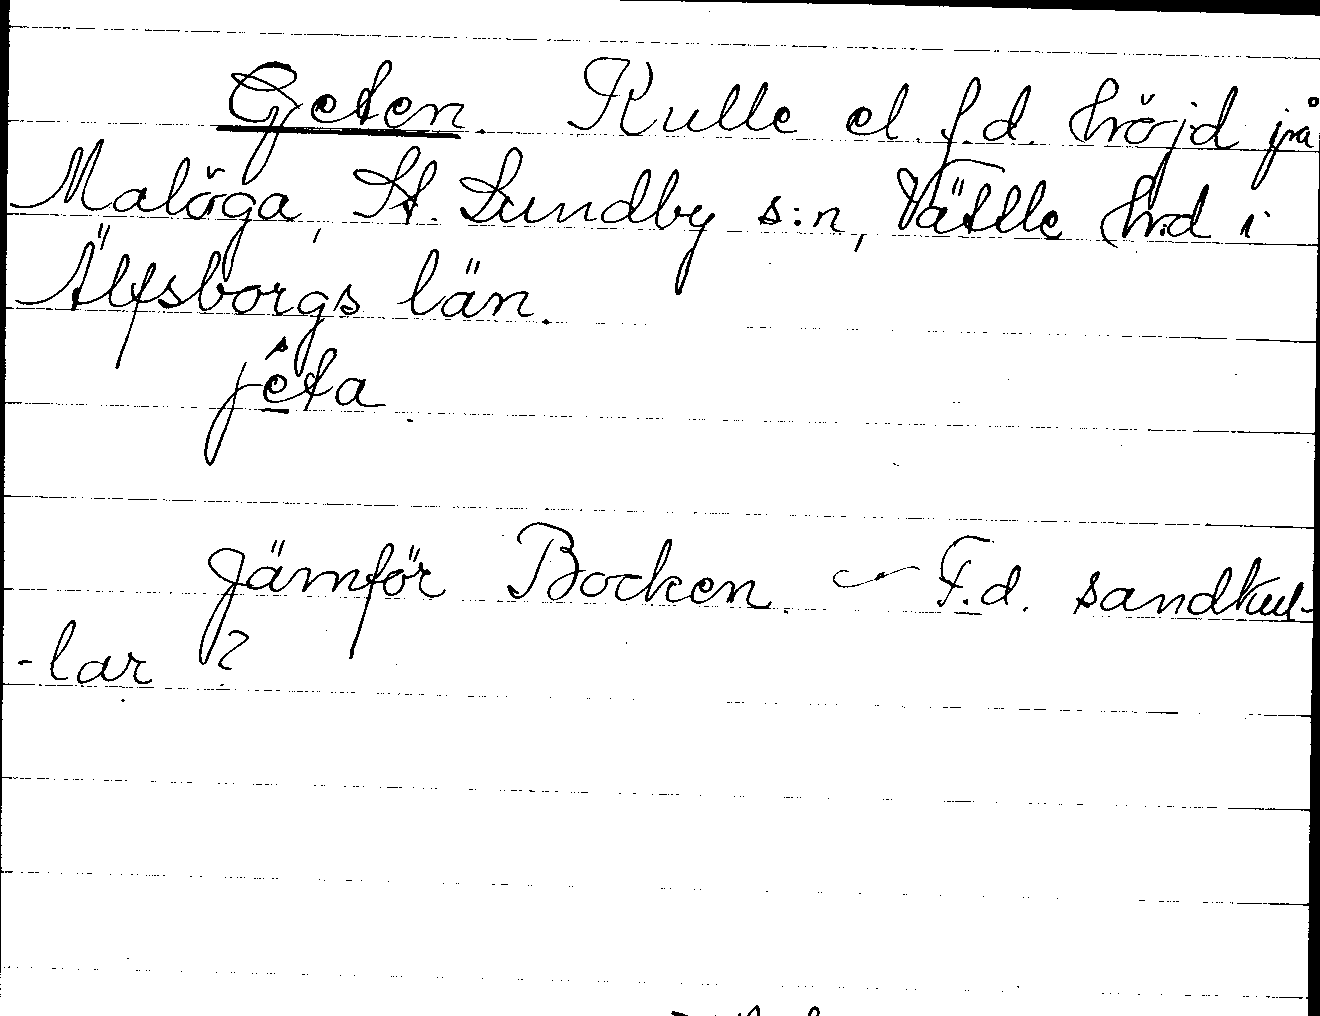 Gjeten. Kulle el. f.d. höjd på
Malöga, St. Lundby s:n, Vättle hd i
Älfsborgs län.
jéta.
Jämför Bocken. — F.d. sandkul-
-lar ?